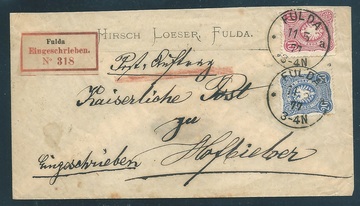 Fulda
Eingeschrieben.
Nº 318
HIRSCH LOESER, FULDA.
FULDA
11
77
3-4N
a
Post-Auftrag
Kaiserliche Post
zu
Hofbieber
Eingeschrieben
FULDA
11
77
3-4N